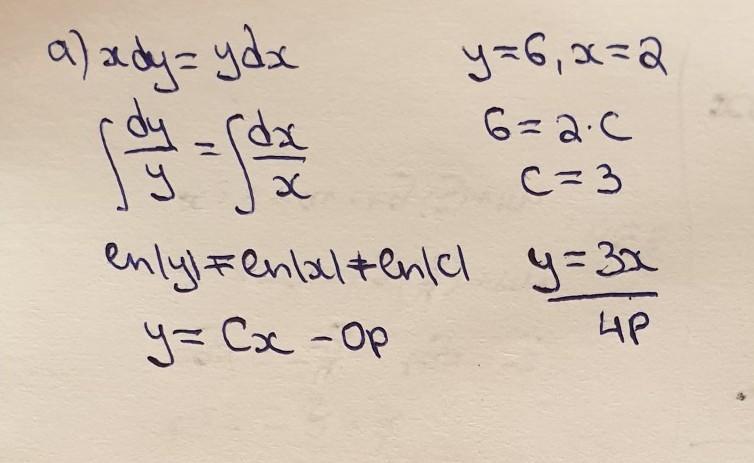 a) xdy = ydx
∫ dy/y = ∫ dx/x
ln|y| = ln|x| + ln|C|
y = Cx - Op
y=6, x=2
6 = 2·C
C = 3
y = 3x
4P